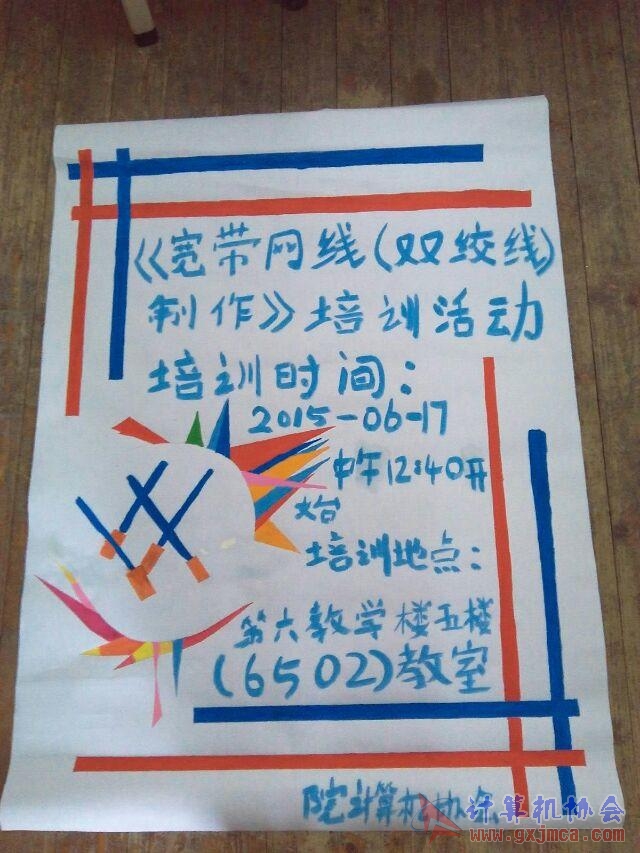 《宽带网线(双绞线)
制作》培训活动
培训时间:
2015-06-17
中午12:40开
始
培训地点:
第六教学楼五楼
(6502)教室
院计算机协会
计算机协会
www.gxjmca.com